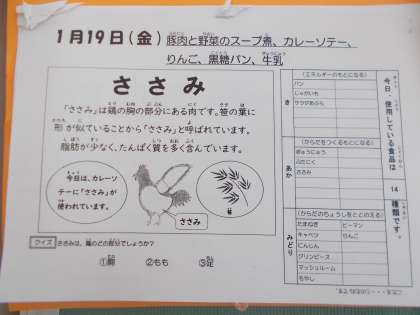 1月19日(金) 豚肉と野菜のスープ煮、カレーソテー、
りんご、黒糖パン、牛乳
ささみ
「ささみ」は鶏の胸の部分にある肉です。笹の葉に
形が似ていることから「ささみ」と呼ばれています。
脂肪が少なく、たんぱく質を多く含んでいます。
今日は、カレーソ
テーに「ささみ」が
使われています。
ささみ
クイズ ささみは、鶏のどの部分でしょうか?
①胸 ②もも ③足
今日、使用している食品は
14
種類です。
き
(エネルギーのもとになる)
パン
じゃがいも
なたねあぶら
あか
(からだをつくるもとになる)
ぎゅうにゅう
ぶたにく
ささみ
みどり
(からだのちょうしをととのえる)
たまねぎ ピーマン
キャベツ りんご
にんじん
グリンピース
マッシュルーム
もやし